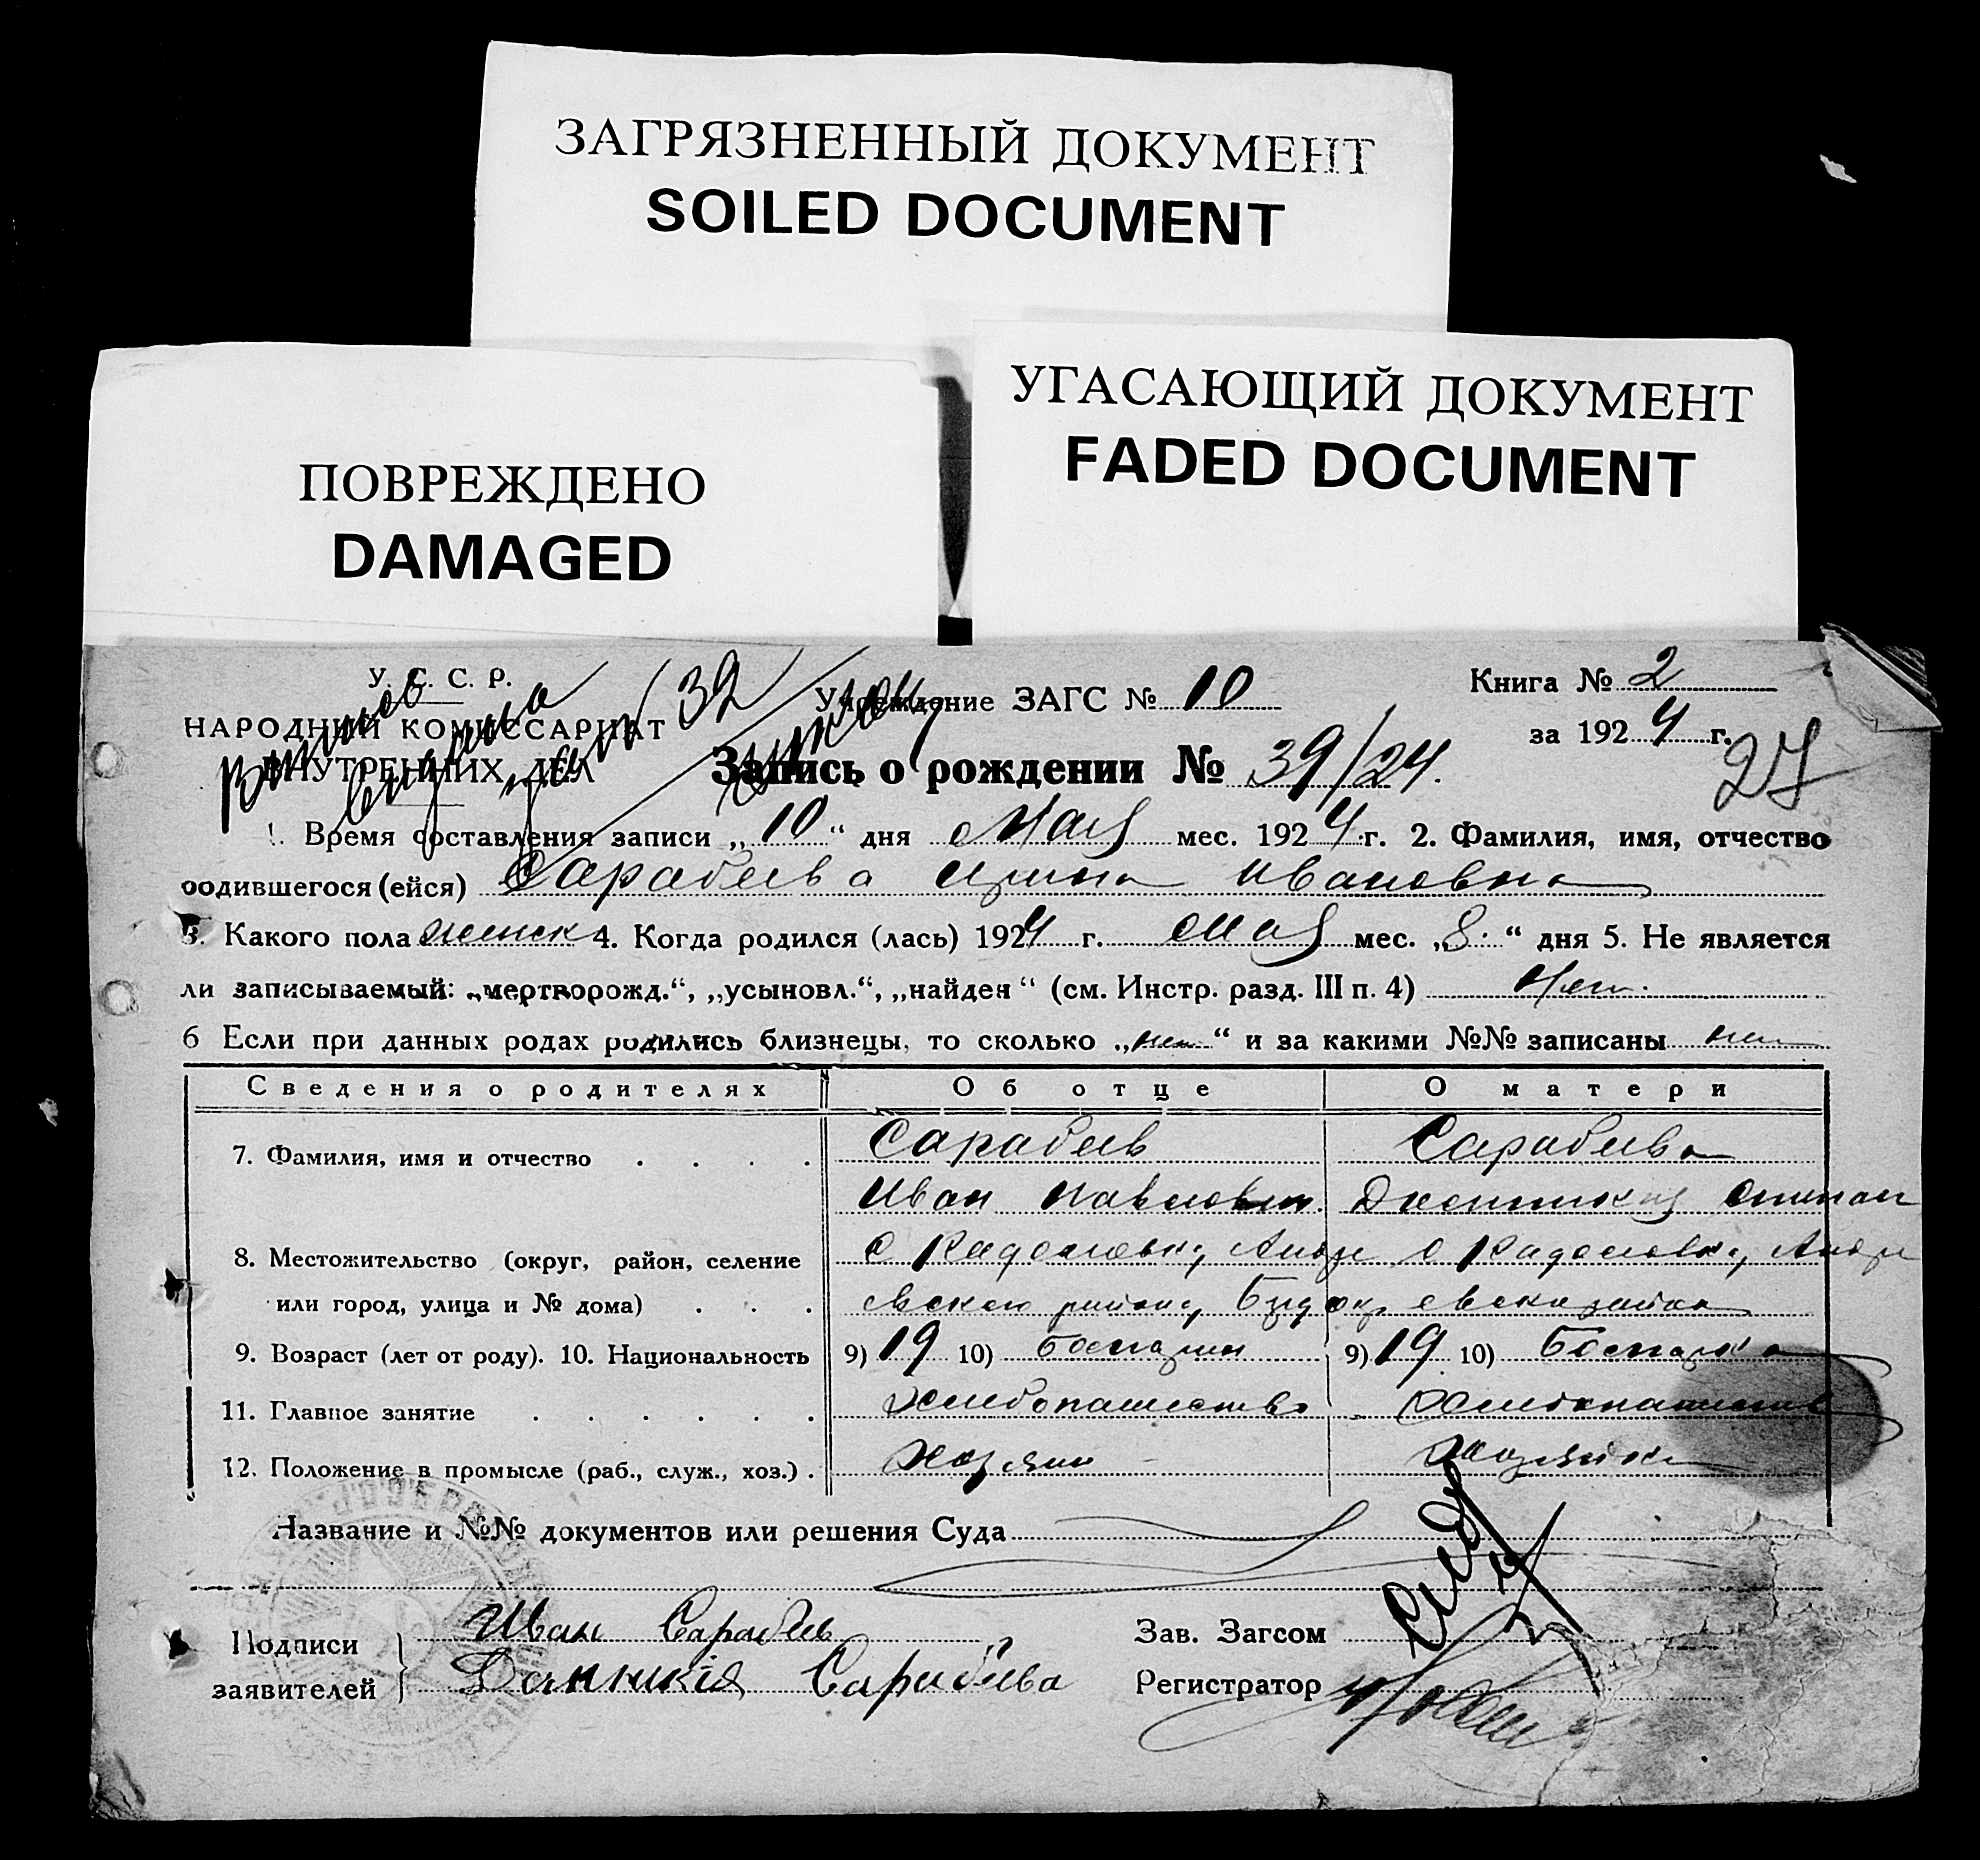 ЗАГРЯЗНЕННЫЙ ДОКУМЕНТ
SOILED DOCUMENT
УГАСАЮЩИЙ ДОКУМЕНТ
FADED DOCUMENT
ПОВРЕЖДЕНО
DAMAGED
У. С. С. Р.
НАРОДНИЙ КОМИССАРИАТ
ВНУТРЕННИХ ДЕЛ
32
Учреждение ЗАГС № 10
Книга № 2
за 1924 г.
27
Запись о рождении № 39/24.
1. Время составления записи „10“ дня Мая мес. 1924 г. 2. Фамилия, имя, отчество
родившегося (ейся) Сарабеева Ирина Ивановна
3. Какого пола женск 4. Когда родился (лась) 1924 г. Мая мес. „8“ дня 5. Не является
ли записываемый: „мертворожд.“, „усыновл.“, „найден“ (см. Инстр. разд. III п. 4) Нет.
6 Если при данных родах родились близнецы, то сколько „нет“ и за какими №№ записаны нет
Сведения о родителях Об отце О матери
7. Фамилия, имя и отчество Сарабеев Сарабеева
Иван Павлович
8. Местожительство (округ, район, селение
или город, улица и № дома) евского района
9. Возраст (лет от роду). 10. Национальность 9) 19 10) Болгарин 9) 19 10) Болгарка
11. Главное занятие Хлебопашество Хлебопашество
12. Положение в промысле (раб., служ., хоз.) Хозяин Хозяйка
Название и №№ документов или решения Суда
Подписи
заявителей
Иван Сарабеев
Домникія Сарабева
Зав. Загсом
Регистратор